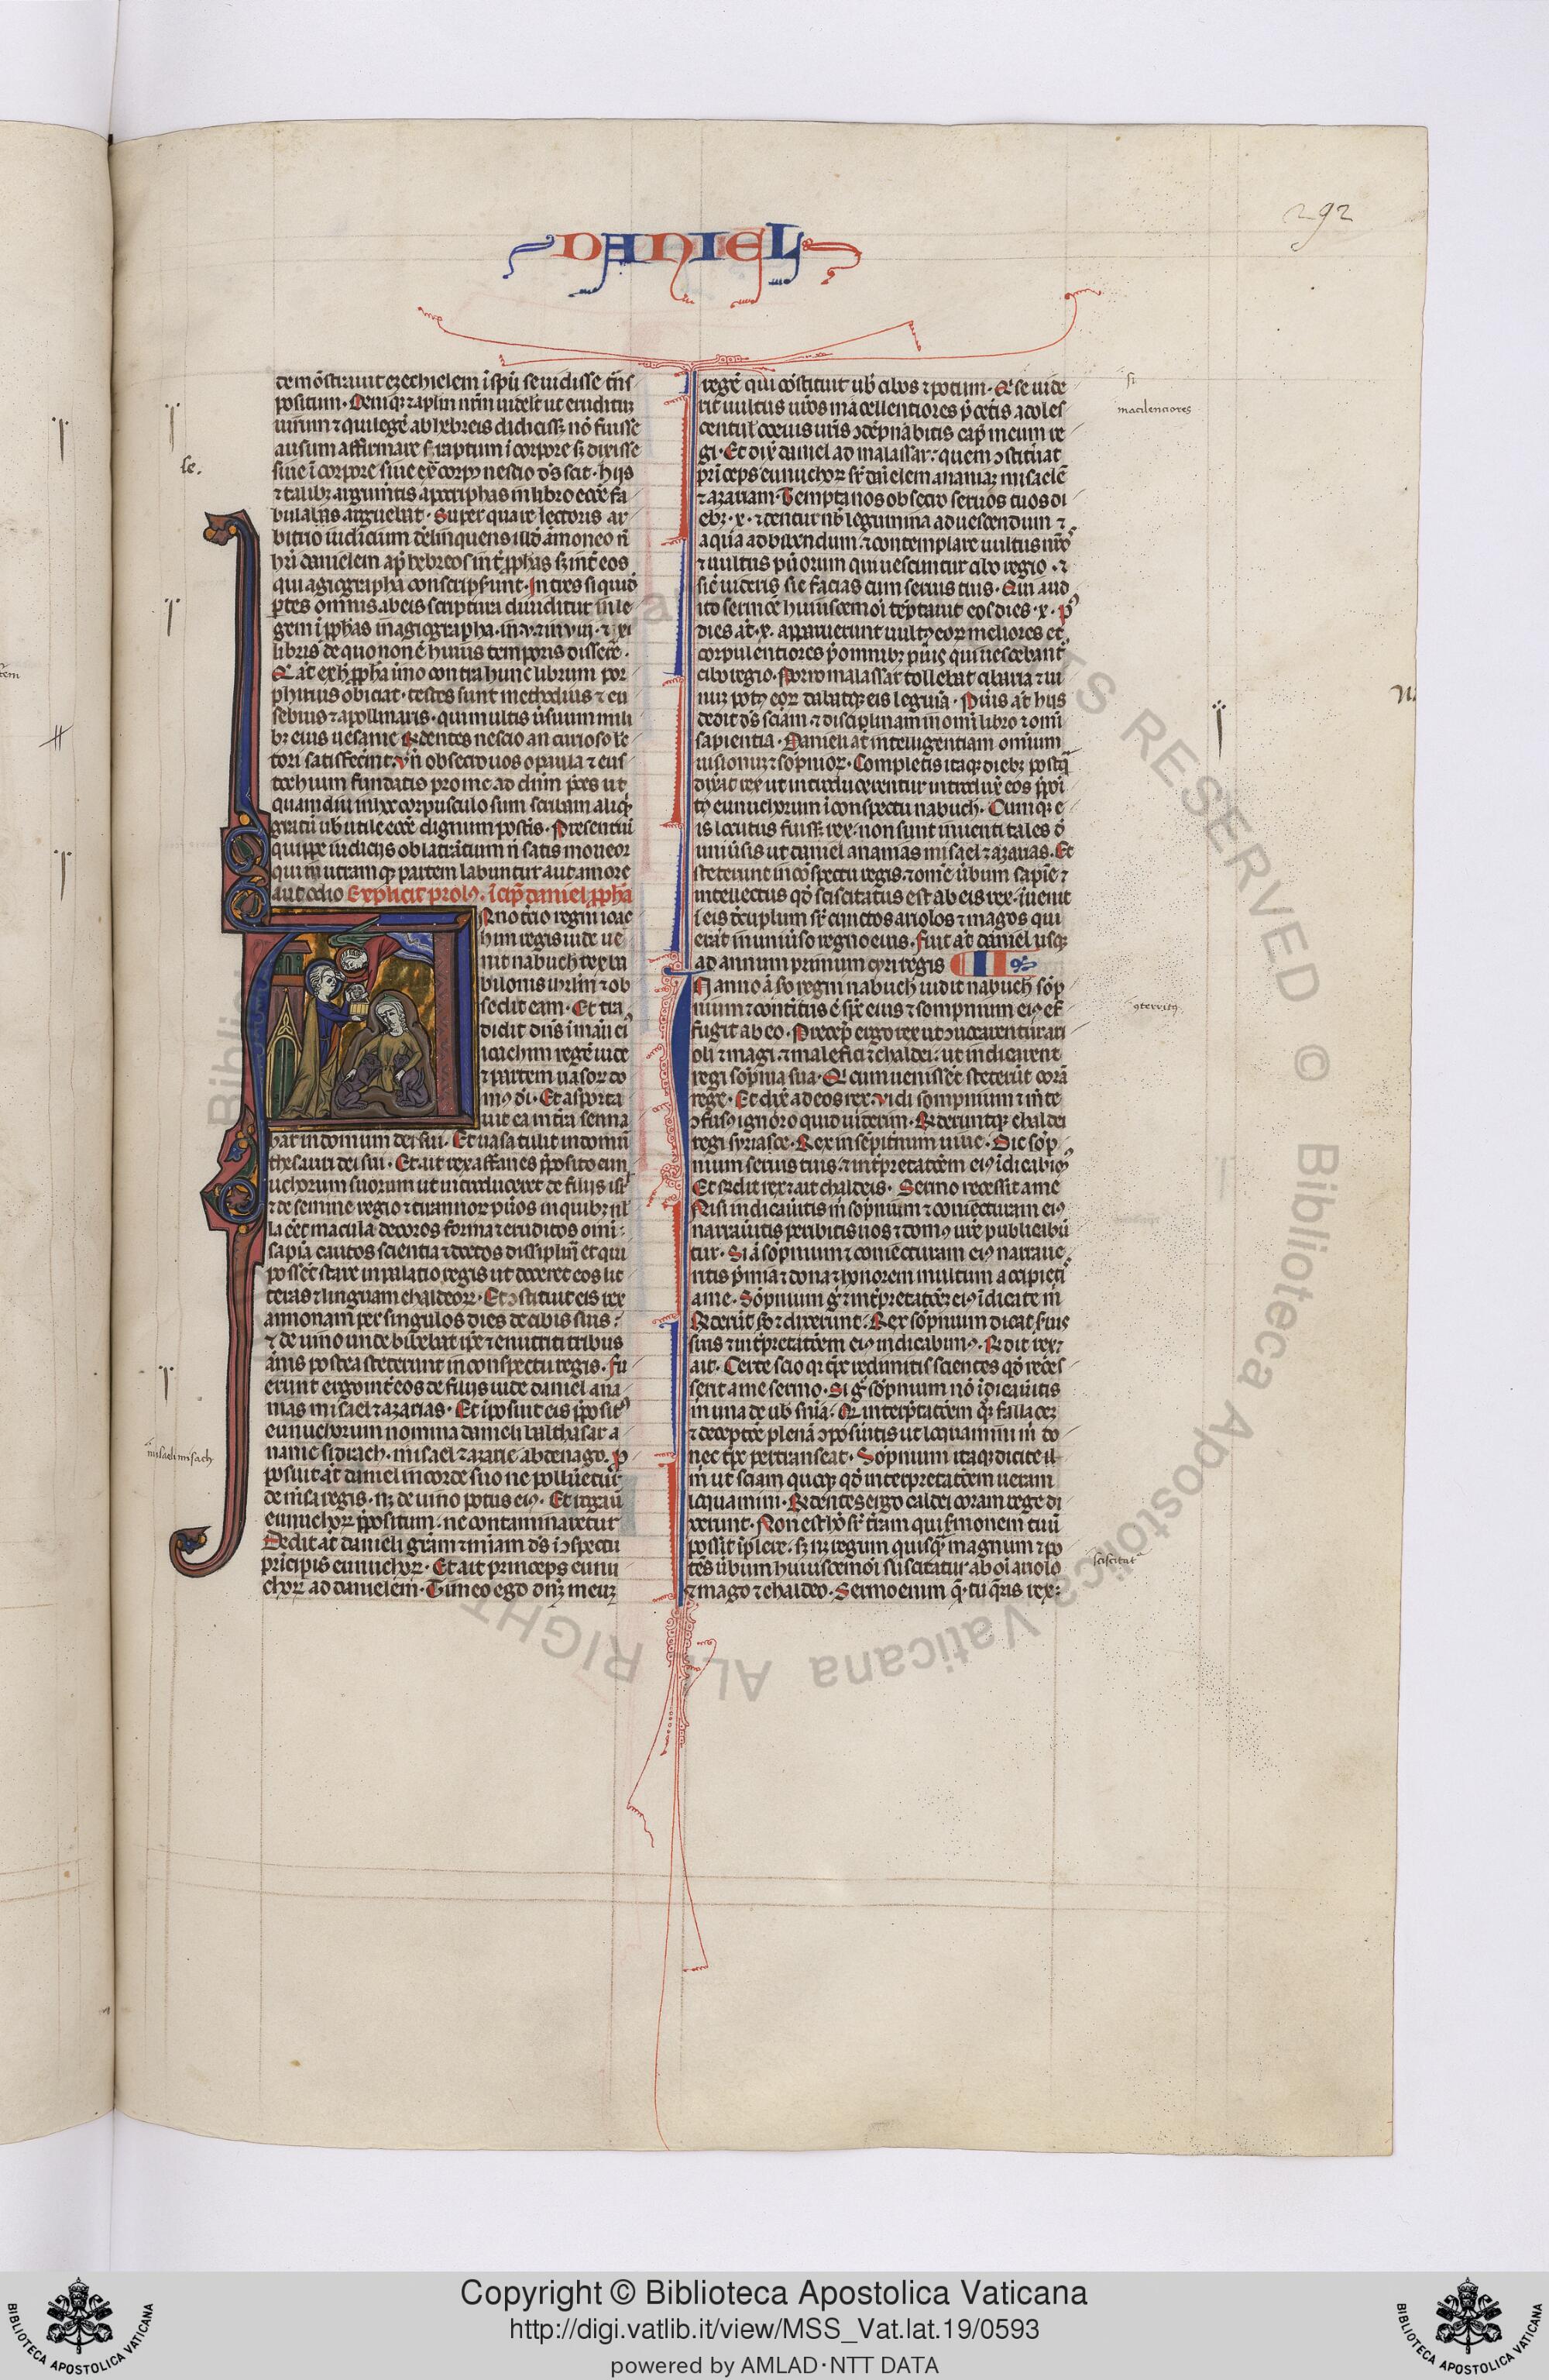 292
DANIEL
demõstrauit ezechielem ĩ spũ se uidisse t̃ns
positum. Deniqꝫ ⁊ aplm nr̃m uidelꝫ ut eruditũ
uirum ⁊ qui legẽ ab hebreis didicissꝫ nõ fuisse
ausum affirmare s̃ raptum ĩ corpore sꝫ dixisse
siue ĩ corpore siue ex̃ corpꝰ nescio d̃s scit. hijs
⁊ talibꝫ argumẽtis apocriphas in libro eccẽ fa
bulas arguebat. Super qua re lectoris ar
bitrio iudicium derelinquens illõ ãmoneo ñ
hr̃i danielem ap̃ hebreos int̃ ꝓphas sꝫ int̃ eos
qui agiographa conscripserunt. In tres siquid̃
ꝑtes omnis ab eis scriptura diuiditur in le
gem ĩ ꝓphas in agiographa. in .v. ⁊ in viij. ⁊ xi
libris de quo non ẽ huius temporis disserẽ.
Q̃ aũt ex hoc ꝓpha ũno contra hunc librum por
phirius obiciat. testes sunt methodius ⁊ eu
sebius ⁊ apollinaris. qui multis ũsuum mili
bꝫ eius uesanie rñdentes nescio an curioso le
ctori satisfecerint. vñ obsecro uos o paula ⁊ eus
tochium fundatis pro me ad dñm p̃ces ut
quamdiu in hoc corpusculo sum scribam aliqꝫ
gratũ uob̃ utile eccẽ dignum post̃is. Presentiũ
quippe iudicijs oblatrãtium ñ satis moueor
qui in utramqꝫ partem labuntur aut amore
aut odio Explicit prolꝰ. ĩcip̃ daniel ꝓpha
Anno t̃cio regni ioac
him regis iude ue
nit nabuch rex ba
bilonis ihrlm̃ ⁊ ob
sedit eam. Et tra
didit dñs ĩ manu eiꝰ
ioachim regẽ iude
⁊ partem uasorꝫ do
mꝰ dĩ. Et asporta
uit ea in t̃ra senna
har in domum dei sui. Et uasa tulit in domũ
thesauri dei sui. Et ait rex affanes p̃posito eun
uchorum suorum ut introduceret de filijs isrl̃
⁊ de semine regio ⁊ tirannorꝫ pũos in quibꝫ nl̃
la eẽt macula decoros forma ⁊ eruditos omi
sapia cautos scientia ⁊ doctos disciplinã et qui
possẽt stare in palatio regis ut doceret eos lit
teras ⁊ linguam chaldeorꝫ. Et ꝯstituit eis rex
annonam per singulos dies de cibis suis
⁊ de uino unde bibebat ip̃e ⁊ enutriti tribus
ãnis postea steterunt in conspectu regis. Fu
erunt ergo int̃ eos de filijs iude daniel ana
nias misael ⁊ azarias. Et ĩposuit eis p̃positꝰ
eunuchorum nomina danieli balthasar a
nanie sidrach. misael ⁊ azarie abdenago. p̃
posuit aũt daniel in corde suo ne pollueretur
de mẽsa regis. nꝫ de uino potus eiꝰ. Et rogauit
eunuchorꝫ p̃positum. ne contaminaretur
Dedit aũt danieli grãm ⁊ miam d̃s ĩ ꝯspectu
principis eunuchorꝫ. Et ait princeps eunu
chorꝫ ad danielem. Timeo ego dñm meũ
regẽ qui cõstituit uob̃ cibos ⁊ potum. Q̃ si uide
rit uultus ur̃os macellentiores p̃ cetis adoles
centul̃ coeuis ur̃is ꝯdẽpnabitis cap̃ meum re
gi. Et dix̃ daniel ad malassar quem ꝯstituat
princeps eunuchorꝫ sr̃ danielem ananiaꝫ misaelẽ
⁊ azariam. Tempta nos obsecro seruos tuos di
ebꝫ .x. ⁊ dentur nob̃ legumina ad uescendum ⁊
aqua ad bibendum. ⁊ contemplare uultus nr̃os
⁊ uultus puorum qui uescuntur cibo regio. ⁊
sic̃ uideris sic facias cum seruis tuis. Qui aud
ito sermõe huiuscemõi tẽptauit eos dies .x. pꝰ
dies aũt .x. apparuerunt uultꝰ eorꝫ meliores et
corpulentiores p̃ omnibꝫ pũis qui uescebant̃
cibo regio. Porro malassar tollebat cibaria ⁊ ui
nũ potꝰ eorꝫ dabatqꝫ eis legumĩa. Pũis aũt hijs
dedit d̃s sciam. ⁊ disciplinam in omi libro ⁊ omi
sapientia. Danieli aũt intelligentiam omium
uisionũ ⁊ sõpniorꝫ. Completis itaqꝫ diebꝫ postq̃
dixat̃ rex ut introducerentur introdux̃ eos p̃posi
tꝰ eunuchorum ĩ conspectu nabuch. Cumqꝫ e
is locutus fuissꝫ rex. non sunt inuenti tales d̃
uniũsis ut daniel ananias misael ⁊ azarias. Et
steterunt in cõspectu regis. ⁊ om̃e ũbum sapiẽ ⁊
intellectus qd̃ sciscitatus est ab eis rex. ĩuenit
ĩ eis decuplum sr̃ cunctos ariolos ⁊ magos qui
erãt in uniũso regno eius. Fuit aũt daniel usqꝫ
ad annum primum cyri regis II
In anno ã sõ regni nabuch uidit nabuch sõp
nium ⁊ contritus ẽ sp̃c eius ⁊ sompnium eiꝰ ef
fugit ab eo. Precep̃ ergo rex ut ꝯuocarentur ari
oli ⁊ magi. ⁊ malefici ⁊ chaldei. ut indicarent
regi sõpnia sua. Q̃ cum uenissẽt steterũt corã
rege. Et dix̃ ad eos rex. Vidi sompnium ⁊ m̃te
ꝯfusꝰ ignoro quid uiderim. Rñderuntqꝫ chaldei
regi syriasce. Rex in sepit̃num uiue. Dic sõp
nium seruis tuis. ⁊ int̃pretatõem eiꝰ ĩdicabimꝰ
Et rñdit rex ⁊ ait chaldeis. Sermo recessit a me
Nisi indicauitis m̃ sõpnium ⁊ coniecturam eiꝰ
narraueritis peribitis uos ⁊ domꝰ ur̃e publicabũ
tur. Si ã sõpnium ⁊ coniecturam eiꝰ narraue
ritis p̃mia ⁊ dona ⁊ honorem multum accipieti
a me. Sõpnium g̃ ⁊ int̃pretatõeꝫ eiꝰ ĩdicate m̃
Rñderũt sõ ⁊ dixerunt. Rex sõpnium dicat suis
suis ⁊ int̃pretatõem eiꝰ indicabimꝰ. Rñdit rex ⁊
ait. Certe scio qꝫ tp̃s redimitis scientes qd̃ reces
serit a me sermo. Si g̃ sõpnium nõ ĩdicauitis
m̃ una de uob̃ snĩa. Q̃ interp̃tatõem qꝫ fallacẽ
⁊ deceptõe plenã ꝯposũitis ut loquamini m̃ do
nec tp̃s pertranseat. Sõpnium itaqꝫ dicite il
m̃ ut sciam quoqꝫ qd̃ interpretatõem ueram
loquamini. Rñdentes ergo caldei coram rege di
xerunt. Non est hõ sr̃ t̃ram qui s̃monem tuũ
possit ĩplere. sꝫ nꝫ regum quisq̃ magnum ⁊ po
tẽs ũbum huiuscemõi suscitatur ab oĩ ariolo
⁊ mago ⁊ chaldeo. Sermo enim q̃ tu q̃ris rex
le.
misaeli misach
si
macilenciores
ꝯterritꝰ
sciscitat̃
Biblioteca Apostolica Vaticana ALL RIGHTS RESERVED ©
Copyright © Biblioteca Apostolica Vaticana
http://digi.vatlib.it/view/MSS_Vat.lat.19/0593
powered by AMLAD·NTT DATA
BIBLIOTECA APOSTOLICA VATICANA
BIBLIOTECA APOSTOLICA VATICANA